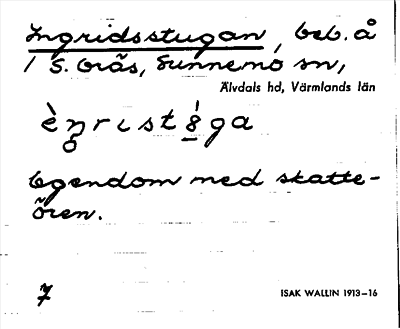 Ingridsstugan, beb. å
1 S. Grås, Sunnemo sn,
Älvdals hd, Värmlands län
Egendom med skatte-
ören.
7
ISAK WALLIN 1913–16